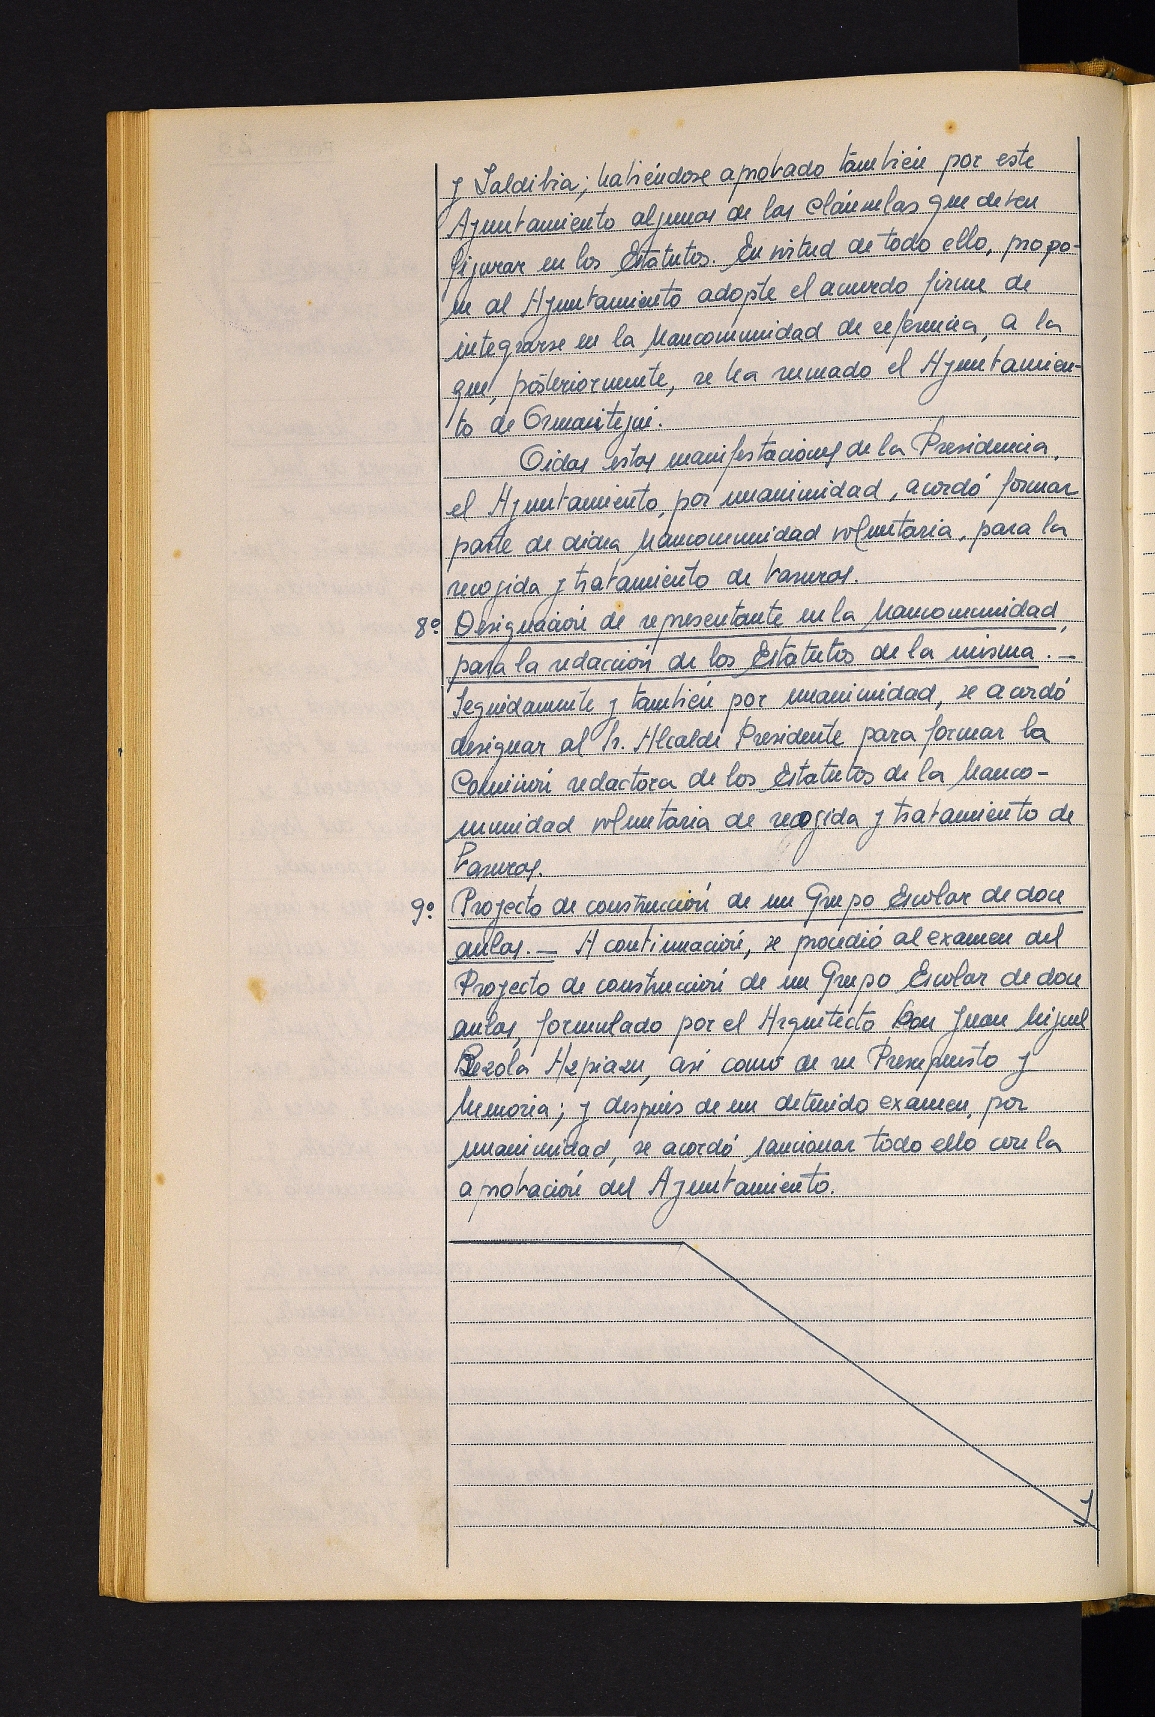 y Zaldibia; habiéndose aprobado también por este
Ayuntamiento algunas de las cláusulas que deben
figurar en los Estatutos. En virtud de todo ello, propo-
ne al Ayuntamiento adopte el acuerdo firme de
integrarse en la Mancomunidad de referencia, a la
que, posteriormente, se ha sumado el Ayuntamien-
to de Ormaiztegui.
Oidas estas manifestaciones de la Presidencia,
el Ayuntamiento, por unanimidad, acordó formar
parte de dicha Mancomunidad voluntaria, para la
recogida y tratamiento de basuras.
8º Designación de representante en la Mancomunidad,
para la redacción de los Estatutos de la misma. —
Seguidamente y también por unanimidad, se acordó
designar al Sr. Alcalde Presidente para formar la
Comisión redactora de los Estatutos de la Manco-
munidad voluntaria de recogida y tratamiento de
basuras.
9º Proyecto de construcción de un Grupo Escolar de doce
aulas. — A continuación, se procedió al examen del
Proyecto de construcción de un Grupo Escolar de doce
aulas, formulado por el Arquitecto Don Juan Miguel
Rezola Azpiazu, así como de su Presupuesto y
Memoria; y después de un detenido examen, por
unanimidad, se acordó sancionar todo ello con la
aprobación del Ayuntamiento.